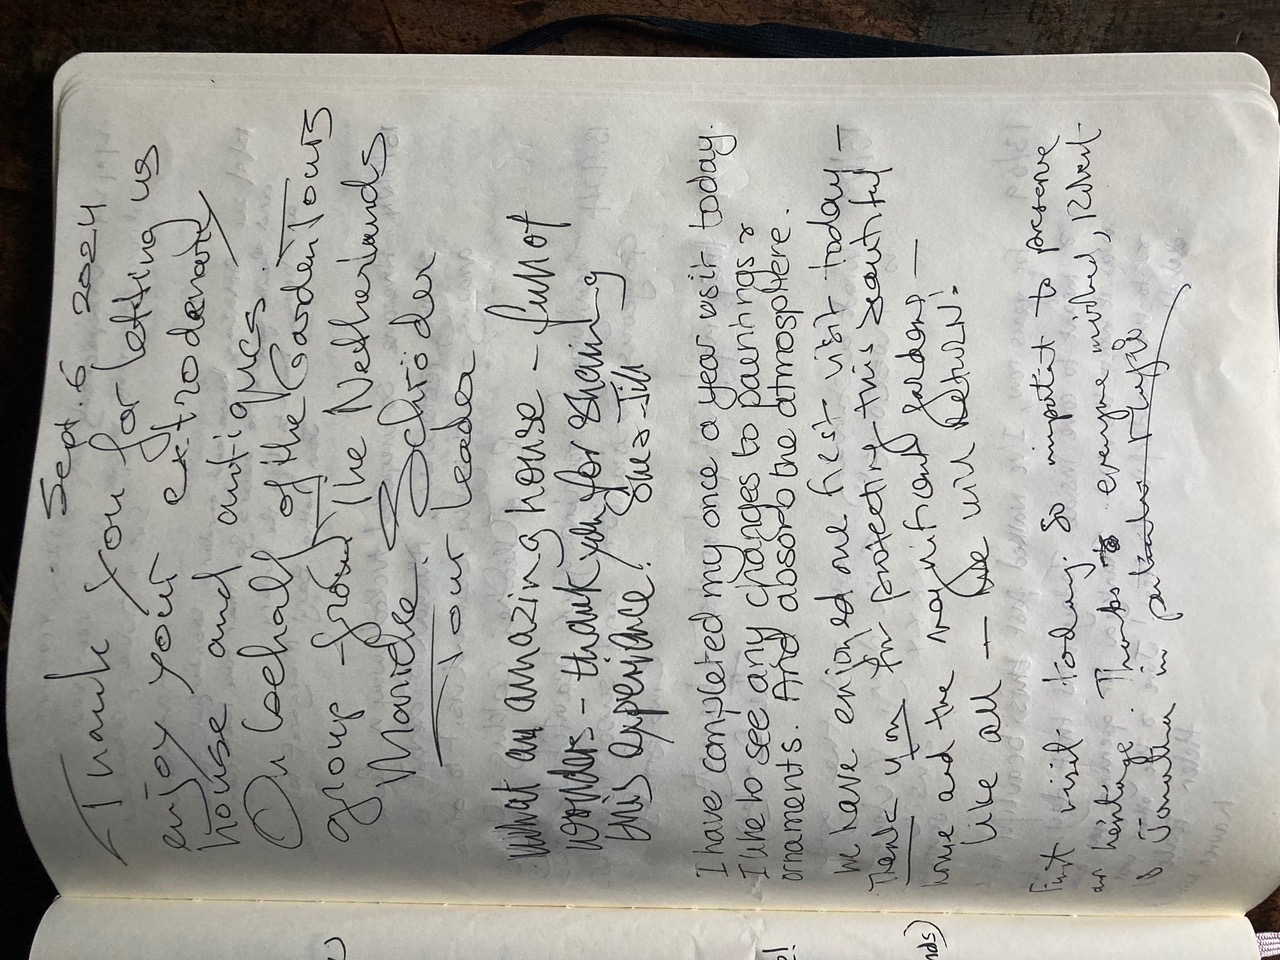 Sept. 6 2024
Thank you for letting us
enjoy your extrodenary
house and antiques.
On behalf of the GardenTours
group from the Netherlands
Marieke Schröder
Tour leader
What an amazing house - full of
wonders - thank you for sharing
this experience! Sue & Jill
I have completed my once a year visit today.
I like to see any changes to paintings &
ornaments. And absorb the atmosphere.
We have enjoyed our first visit today -
Thank you for protecting this beautiful
house and the magnificent garden! -
Like all - we will return!
First visit today. So important to preserve
our heritage. Thanks to everyone involved, Robert
& Jonathan in particular
nds)